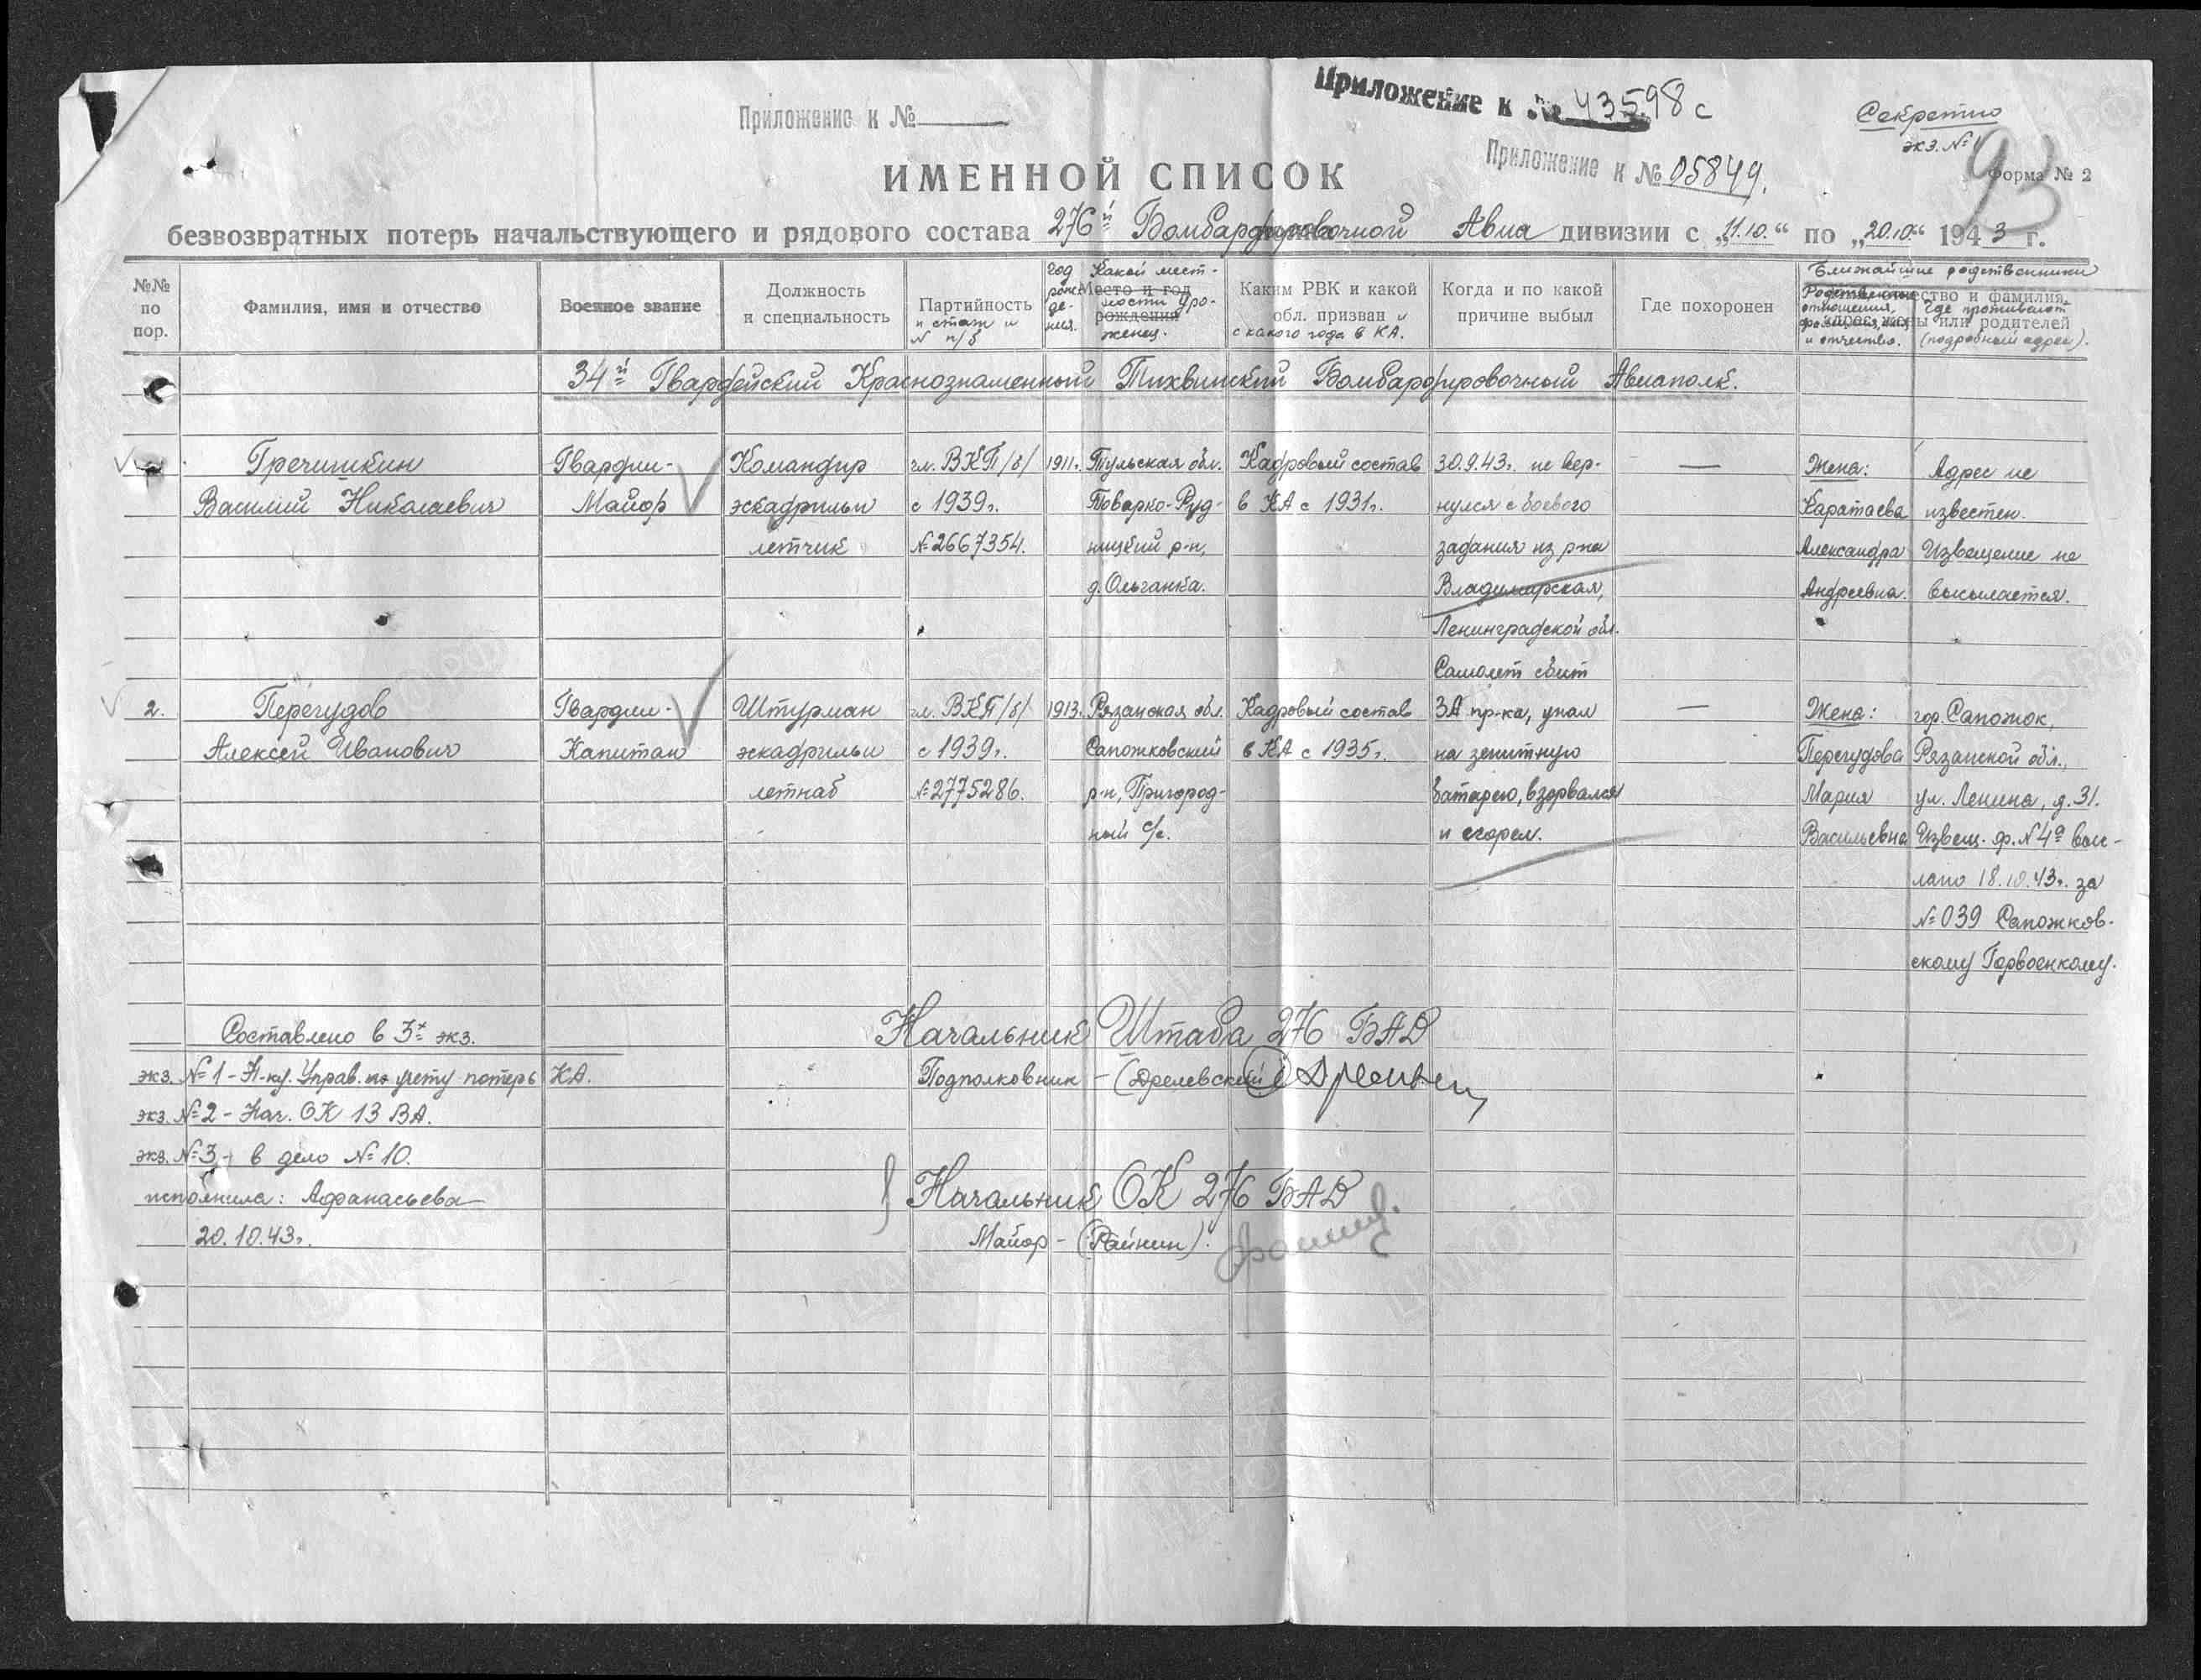 Приложение к №
Приложение к № 43598 с
Секретно
экз. № 1
93
Приложение к № 05849.
Форма № 2
ИМЕННОЙ СПИСОК
безвозвратных потерь начальствующего и рядового состава 276й Бомбардировочной Авиа дивизии с „11.10.“ по „20.10.“ 1943 г.
№№ по пор.
Фамилия, имя и отчество
Военное звание
Должность и специальность
Партийность и стаж и № п/б
Год рожде-ния.
Какой мест-ности уро-женец.
Место и год рождения
Каким РВК и какой обл. призван и с какого года в КА.
Когда и по какой причине выбыл
Где похоронен
Ближайшие родственники
отношения, фамилия, имя и отчество.
Где проживают (подробный адрес).
34й Гвардейский Краснознаменный Тихвинский Бомбардировочный Авиаполк.
Гречишкин Гвардии- Командир чл. ВКП/б/ 1911г. Тульская обл. Кадровый состав 30.9.43г. не вер- — Жена: Адрес не
Василий Николаевич Майор эскадрильи с 1939г. Товарко-Руд- в КА с 1931г. нулся с боевого Каратаева известен.
летчик №2667354. ницкий р-н, задания из р-на Александра Извещение не
д. Ольганка. Владимирская, Андреевна. высылается.
Ленинградской обл.
Самолет сбит
2. Перегудов Гвардии- Штурман чл. ВКП/б/ 1913г. Рязанская обл. Кадровый состав ЗА пр-ка, упал — Жена: гор. Сапожок,
Алексей Иванович Капитан эскадрильи с 1939г. Сапожковский в КА с 1935г. на зенитную Перегудова Рязанской обл.,
летнаб №2775286. р-н, Пригород- батарею, взорвался Мария ул. Ленина, д. 31.
ный с/с. и сгорел. Васильевна Извещ. ф. №4а выс-
лано 18.10.43г. за
№039 Сапожков-
скому Горвоенкому.
Составлено в 3х экз.
Начальник Штаба 276 БАД
экз. №1 - Н-ку. Управ. по учету потерь КА.
Подполковник - (Дрелевский)
экз. №2 - Нач. ОК 13 ВА.
экз. №3 - в дело №10.
исполнила: Афанасьева
Начальник ОК 276 БАД
20.10.43г.
Майор - (Райнин).